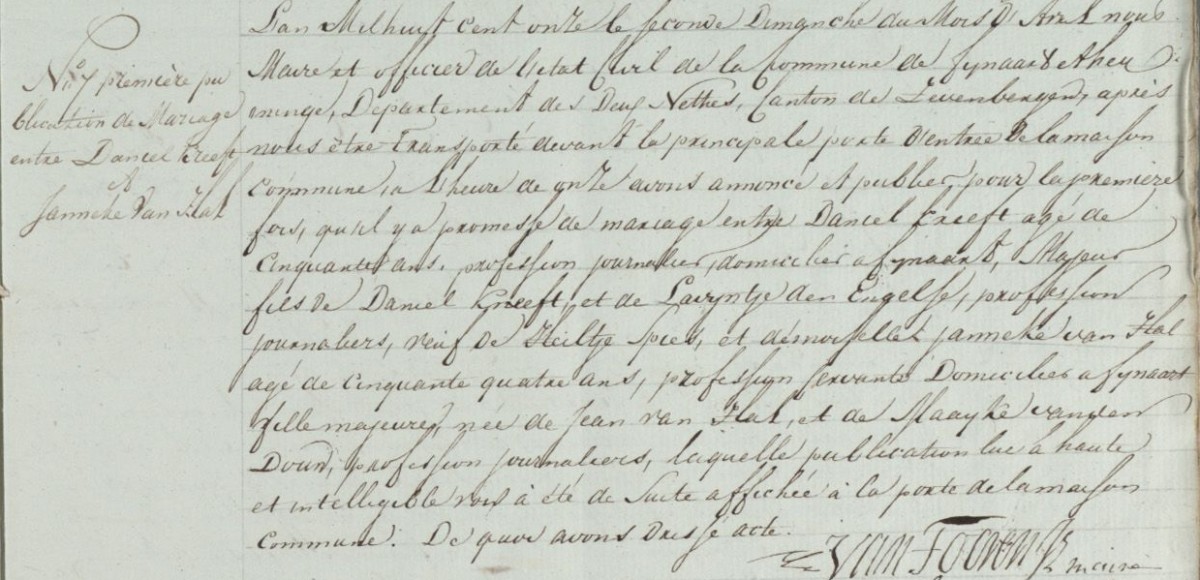 N.º 7 première pu
blication de Mariage
entre Daniel Kreeft
et
Janneke Van Hal
L'an Mil huit cent onze le seconde Dimanche du Mois d'Avril nous
Maire et officier de l'etat Civil de la Commune de fynaart & Heij
ninge, Departement des Deux Nethes, Canton de Zevenbergen, après
nous être Transporté devant la principale porte d'entrée de la maison
Commune, a l'heure de onze avons annoncé et publier, pour la première
fois, qu'il y a promesse de mariage entre Daniel Kreeft agé de
Cinquante ans, profession journalier, domicilier a fynaart, Majeur
fils de Daniel Kreeft, et de Lavyntje den Engelse, profession
journaliers, veuf de Heiltje Spies, et démoiselle Janneke van Hal
agé de Cinquante quatre ans, profession servante Domicilier a fynaart
fille majeure, née de Jean van Hal, et de Maayke van den
Dours, profession journaliers, laquelle publication lue à haute
et intelligible voix à été de Suite affichée à la porte de la maison
Commune. De quoi avons Dressé acte.
maire